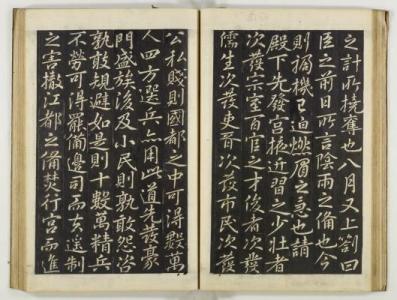 之計所撓奪也八月又上劄曰
臣之前日所言陰雨之備也今
則禍機已迫燃眉之急也請
殿下先發宮掖近習之少壯者
次發宗室百官之才俊者次發
儒生次發吏胥次發市民次發
公私賤則國都之中可得數萬
人四方選兵亦用此道先發豪
門盛族後及小民則孰敢怨咨
孰敢規避如是則十數萬精兵
不勞可得罷備邊司而玄遂制
之害撤江都之備焚行宮而進